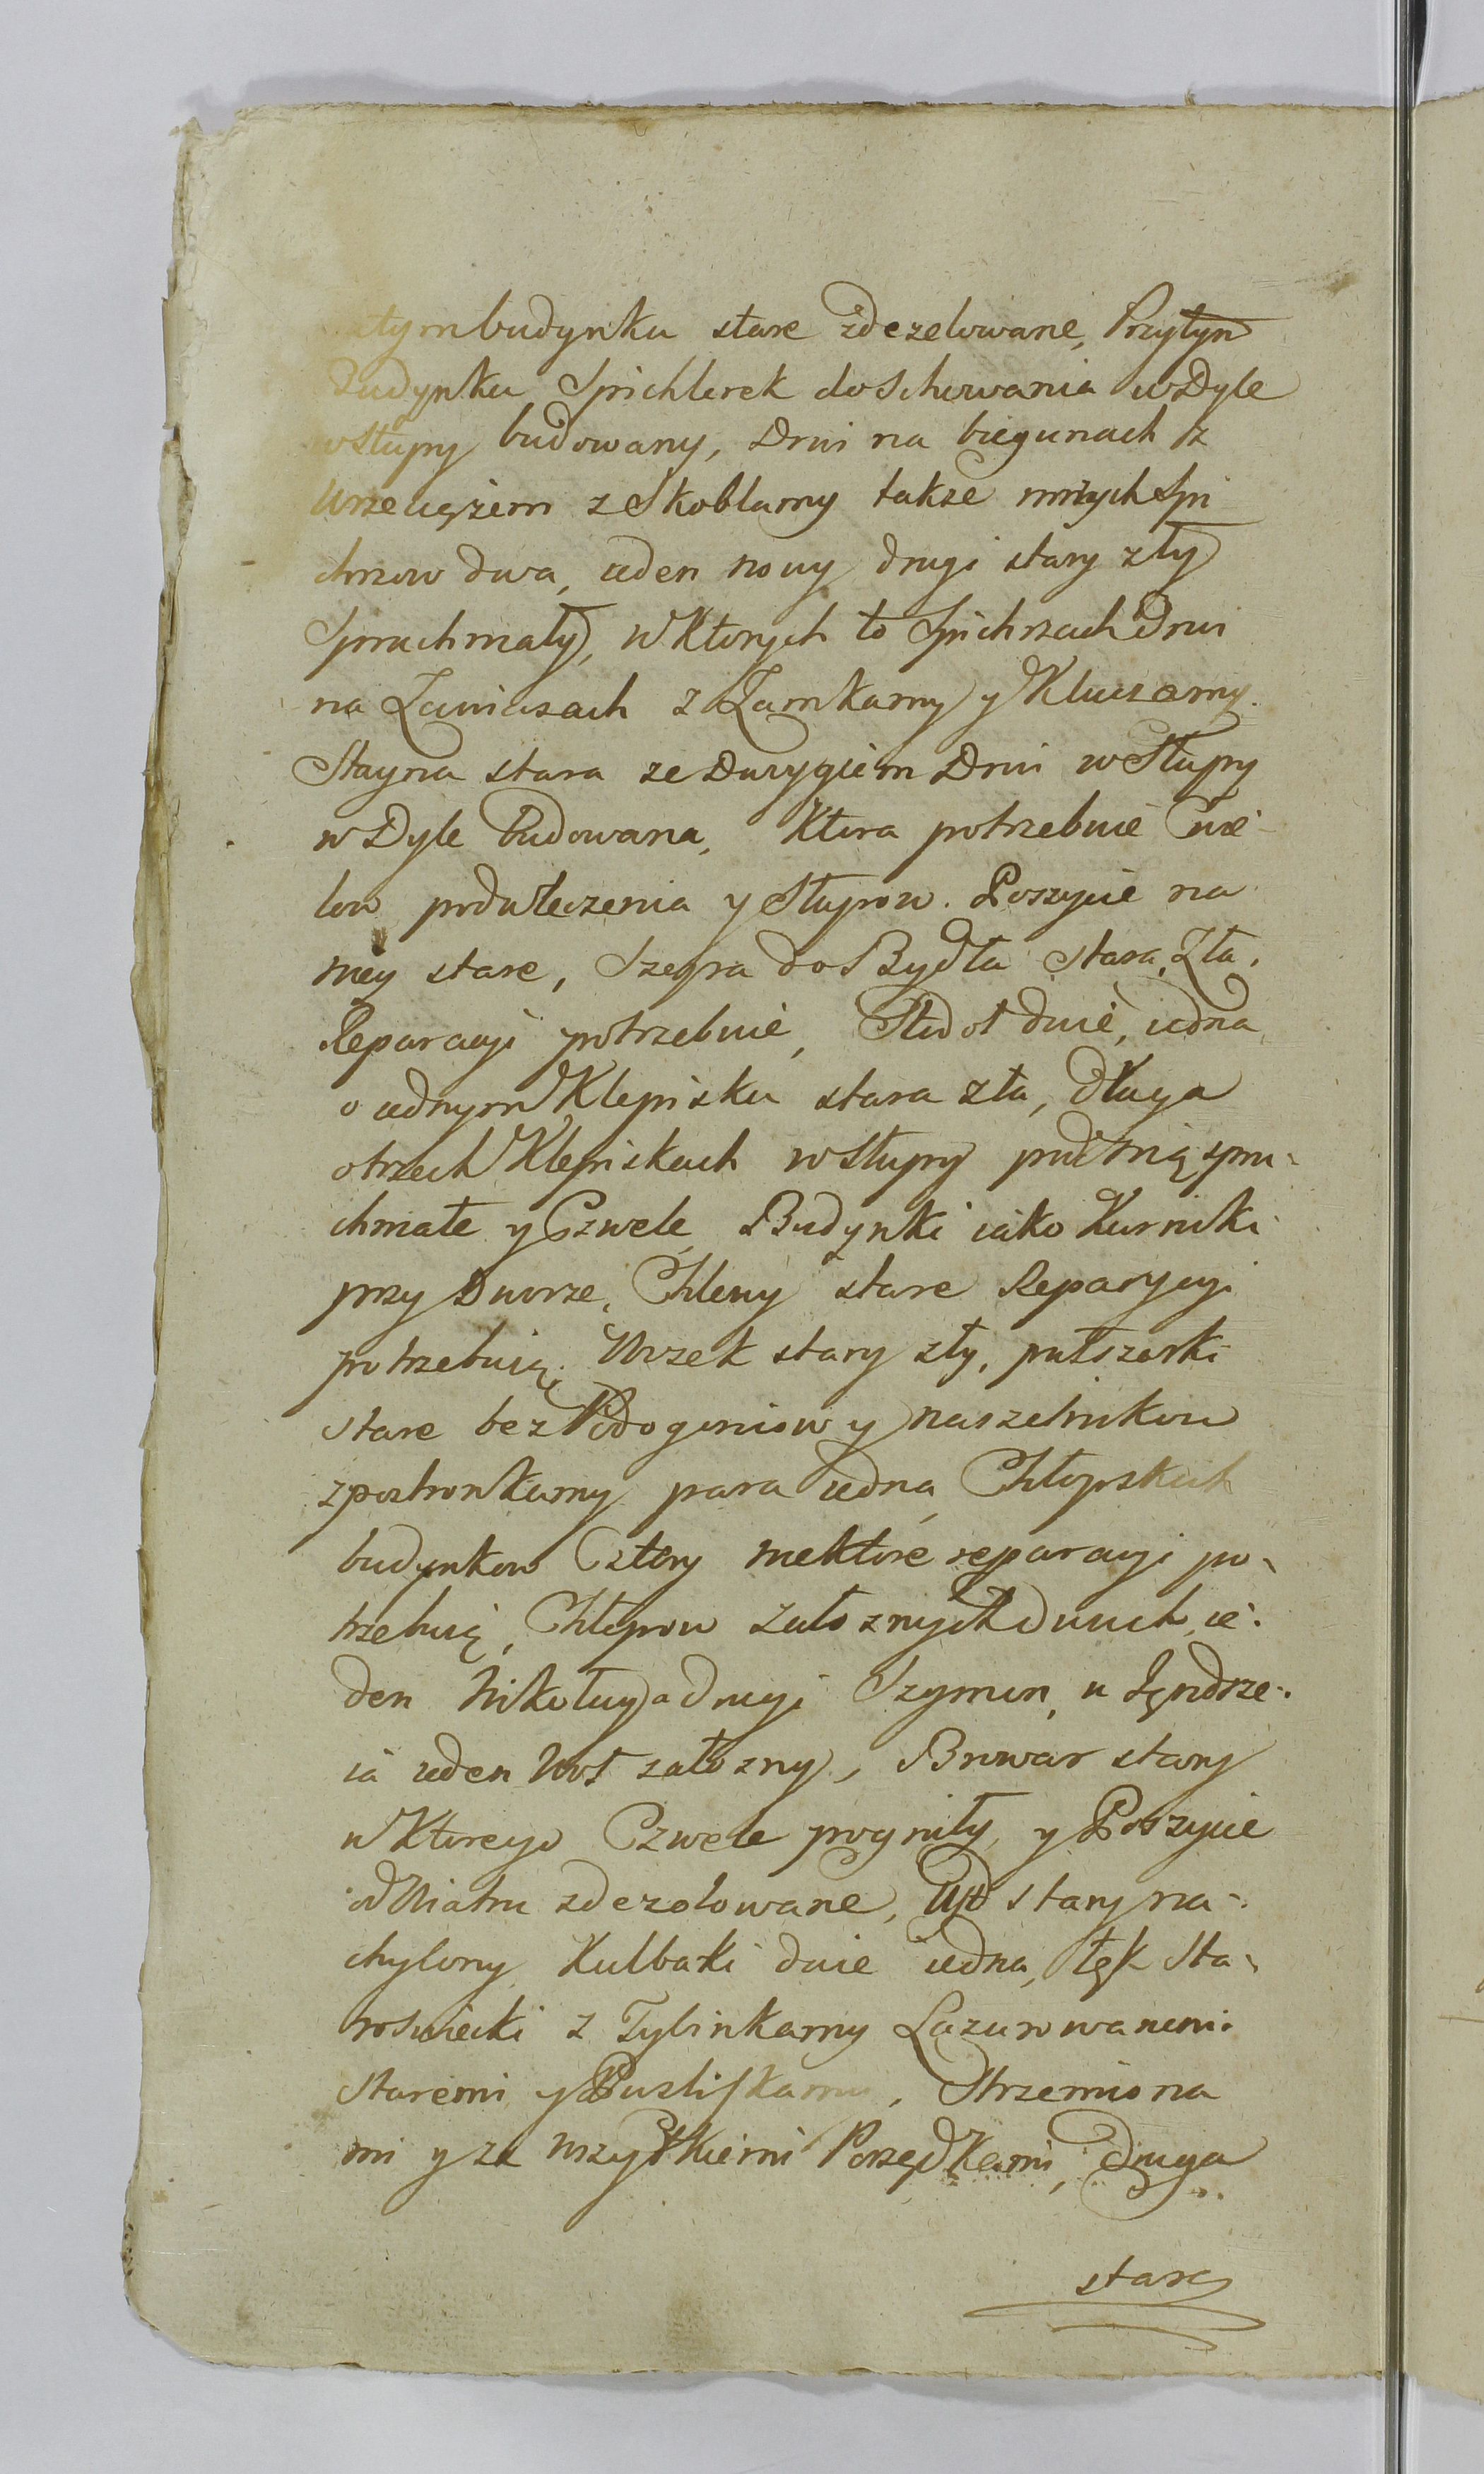 tym budynku stare zdezelowane, Przytym
Budynku Spichlerek do Schowania w Dyle
w Słupy budowany, Drwi na biegunach z
Wrzeciążem z Skoblamy także innych Spi
chrzow dwa, ieden nowy drugi stary zły
Spruchniały, w Ktorych to Spichrzach Drwi
na Zawiasach z Zamkamy y Kluczamy.
Stayna stara ze Dwoygiem Drwi w Słupy
w Dyle Budowana, Ktora potrzebuie Cwe
low podwleczenia y Słupow. Poszycie na
niey stare, Szopa do Bydła stara, Zła,
Reparacyi potrzebuie, Stodoł dwie, iedna
o iednym Klepisku stara zła, Długa
o trzech Klepiskach w Słupy spru-
chniałe y Czwele, Budynki iako Kurniki
przy Dworze, Chlewy stare Reparacyi
potrzebuią. Wozek stary zły, pułszorki
stare bez Podogoniow y naszelnikow
z postronkamy para iedna, Chłopskich
budynkow Cztery niektore reparacyi po-
trzebuią, Chłopow załoznych dwuch, ie-
den Mikołay a drugi Szymon, u Jędrze-
ia ieden Woł załozny, Browar stary
w Ktorego Czwele pogniły, y Poszycie
od Wiatru zdezolowane, stary na-
chylony, Kulbaki dwie iedna, łęk Sta-
roswiecki z Tybinkamy Lazurowanemi
staremi y Pusliskamy, Strzemiona
mi y ze wszystkiemi Porządkami, Druga
stara